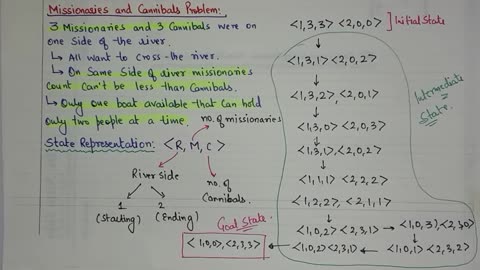 Missionaries and Cannibals Problem:
3 Missionaries and 3 Cannibals were on
one side of the river.
↳ All want to cross the river.
↳ On Same Side of river missionaries
count Can't be less than Cannibals.
↳ Only one boat available that can hold
only two people at a time.
no. of missionaries
State Representation: <R, M, C>
River side
no. of
Cannibals.
1 2
(Starting) (Ending)
Goal State.
<1,0,0>,<2,3,3>
<1,3,3> <2,0,0> ] Initial State
<1,3,1> <2,0,2>
<1,3,2>,<2,0,1>
<1,3,0> <2,0,3>
<1,3,1>,<2,0,2>
<1,1,1> <2,2,2>
<1,2,2>, <2,1,1>
<1,0,2> <2,3,1> → <1,0,3>,<2,3,0>
<1,0,2> <2,3,1> ← <1,0,1> <2,3,2>
Intermediate
State.